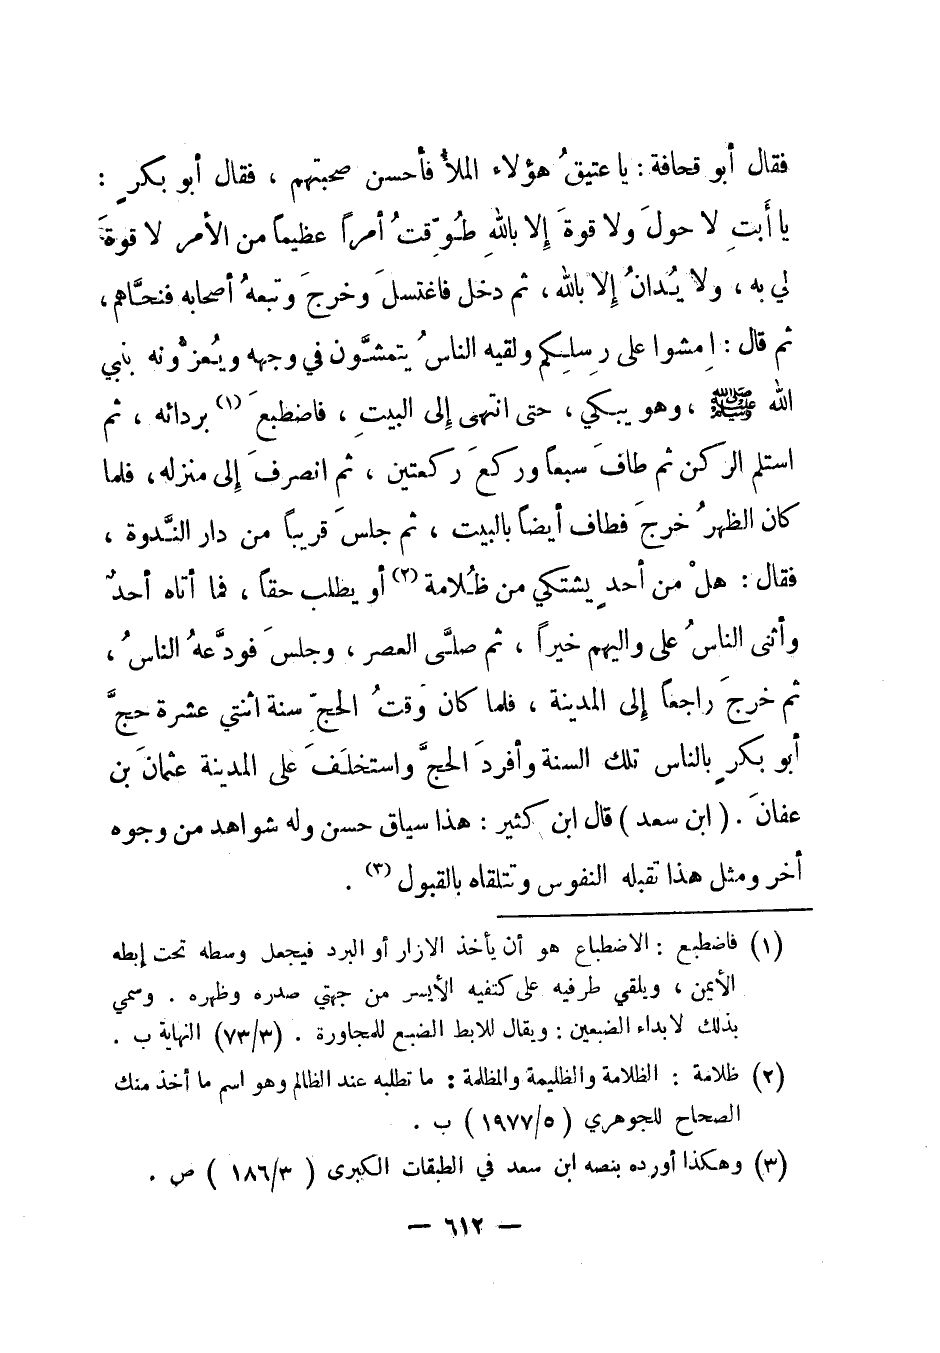 فقال أبو قحافة : يا عتيقُ هؤلاء الملأُ فأحسن صحبتهم ، فقال أبو بكرٍ :
يا أَبتِ لا حولَ ولا قوةَ إلا باللهِ طُوِّقتُ أمراً عظيماً من الأمر لا قوةَ
لي به ، ولا يُدانُ إلا بالله ، ثم دخل فاغتسلَ وخرجَ وتبعهُ أصحابه فنحَّاهم ،
ثم قال : اِمشوا على رِسلِكم ولقيه الناسُ يتمشَّون في وجهه ويُعزُّونه بنبي
الله ﷺ ، وهو يبكي ، حتى انتهى إلى البيتِ ، فاضطبعَ (١) بردائه ، ثم
استلم الركن ثم طافَ سبعاً وركعَ ركعتين ، ثم انصرفَ إلى منزله ، فلما
كان الظهرُ خرجَ فطاف أيضاً بالبيت ، ثم جلسَ قريباً من دار النَّدوة ،
فقال : هلْ من أحدٍ يشتكي من ظُلامة (٢) أو يطلب حقاً ، فما أتاه أحدٌ
وأثنى الناسُ على واليهم خيراً ، ثم صلَّى العصر ، وجلسَ فودَّعهُ الناسُ ،
ثم خرجَ راجعاً إلى المدينة ، فلما كان وقتُ الحجِّ سنة اثنتي عشرة حجَّ
أبو بكرٍ بالناس تلك السنة وأفردَ الحجَّ واستخلفَ على المدينة عثمانَ بن
عفانَ . ( ابن سعد ) قال ابن كثير : هذا سياق حسن وله شواهد من وجوه
أخر ومثل هذا تقبله النفوس وتتلقاه بالقبول (٣) .
(١) فاضطبع : الاضطباع هو أن يأخذ الازار أو البرد فيجعل وسطه تحت إبطه
الأيمن ، ويلقي طرفيه على كتفيه الأيسر من جهتي صدره وظهره . وسمي
بذلك لابداء الضبعين : ويقال للابط الضبع للمجاورة . (٧٣/٣) النهاية ب .
(٢) ظلامة : الظلامة والظليمة والمظلمة : ما تطلبه عند الظالم وهو اسم ما أخذ منك
الصحاح للجوهري ( ١٩٧٧/٥ ) ب .
(٣) وهكذا أورده بنصه ابن سعد في الطبقات الكبرى ( ١٨٦/٣ ) ص .
— ٦١٢ —